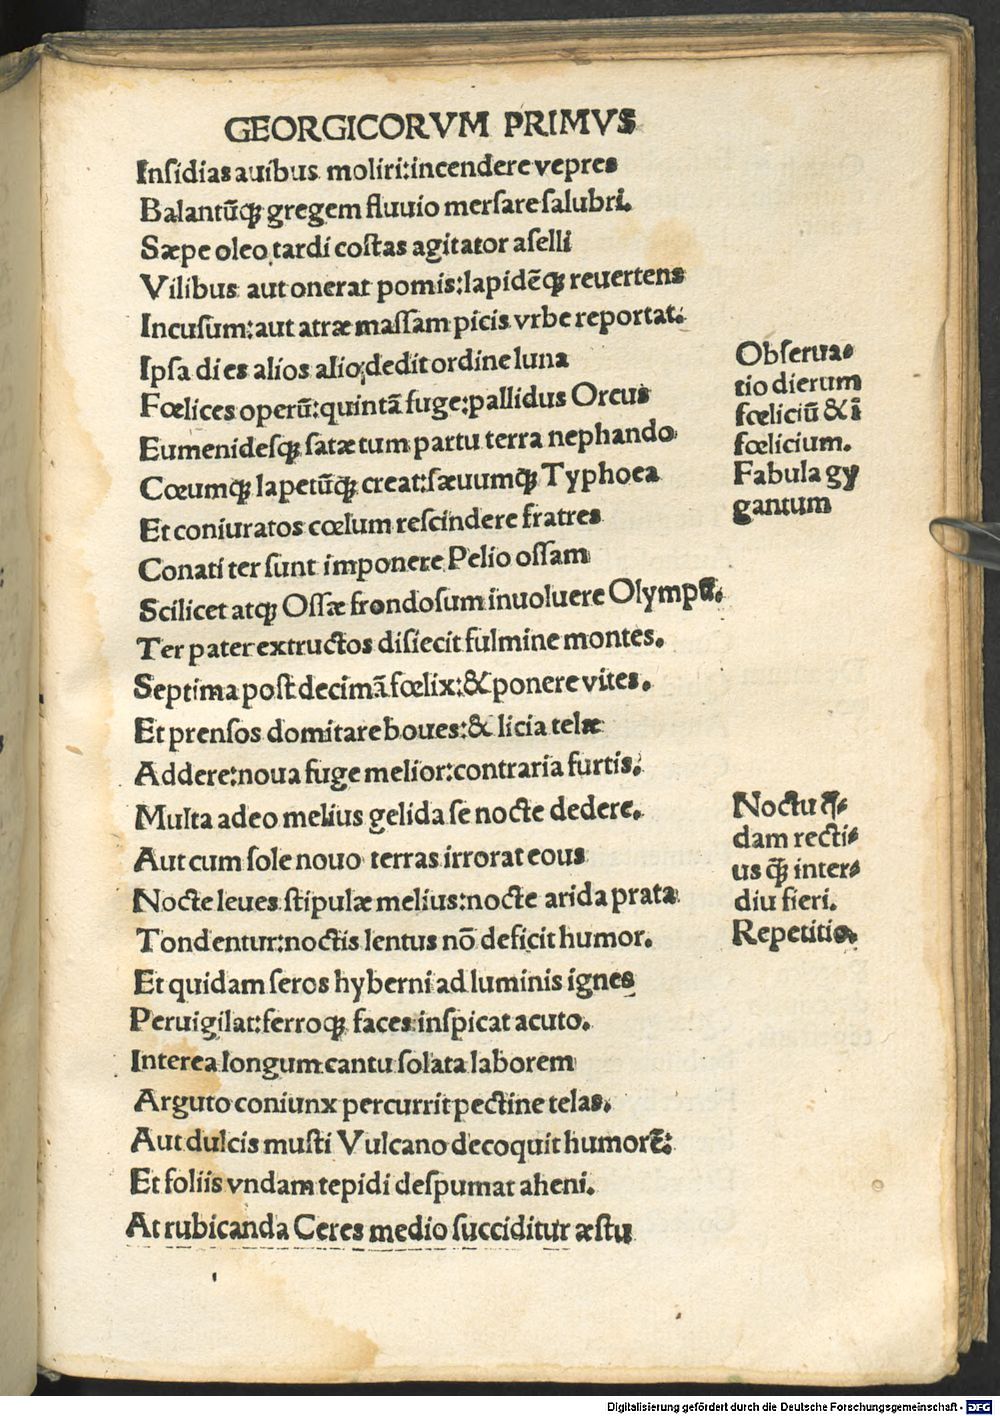 GEORGICORVM PRIMVS
Insidias auibus moliri:incendere vepres
Balantũq; gregem fluuio mersare salubri.
Sæpe oleo tardi costas agitator aselli
Vilibus aut onerat pomis:lapidẽq; reuertens
Incusum:aut atræ massam picis vrbe reportat.
Ipsa dies alios alio dedit ordine luna
Fœlices operũ:quintã fuge:pallidus Orcus
Eumenidesq; satæ tum partu terra nephando
Cœumq; Iapetũq; creat:sæuumq; Typhoea
Et coniuratos cœlum rescindere fratres
Conati ter sunt imponere Pelio ossam
Scilicet atq; Ossæ frondosum inuoluere Olympũ.
Ter pater extructos disiecit fulmine montes.
Septima post decimã fœlix:& ponere vites.
Et prensos domitare boues:& licia telæ
Addere:noua fuge melior:contraria furtis.
Multa adeo melius gelida se nocte dedere.
Aut cum sole nouo terras irrorat eous
Nocte leues stipulæ melius:nocte arida prata
Tondentur:noctis lentus nõ deficit humor.
Et quidam seros hyberni ad luminis ignes
Peruigilat:ferroq; faces inspicat acuto.
Interea longum cantu solata laborem
Arguto coniunx percurrit pectine telas.
Aut dulcis musti Vulcano decoquit humorẽ:
Et foliis vndam tepidi despumat aheni.
At rubicanda Ceres medio succiditur æstu
Obserua-
tio dierum
fœliciũ & ĩ
fœlicium.
Fabula gy
gantum
Noctu q̃-
dam recti-
us q̃ inter-
diu fieri.
Repetitio.
Digitalisierung gefördert durch die Deutsche Forschungsgemeinschaft - DFG